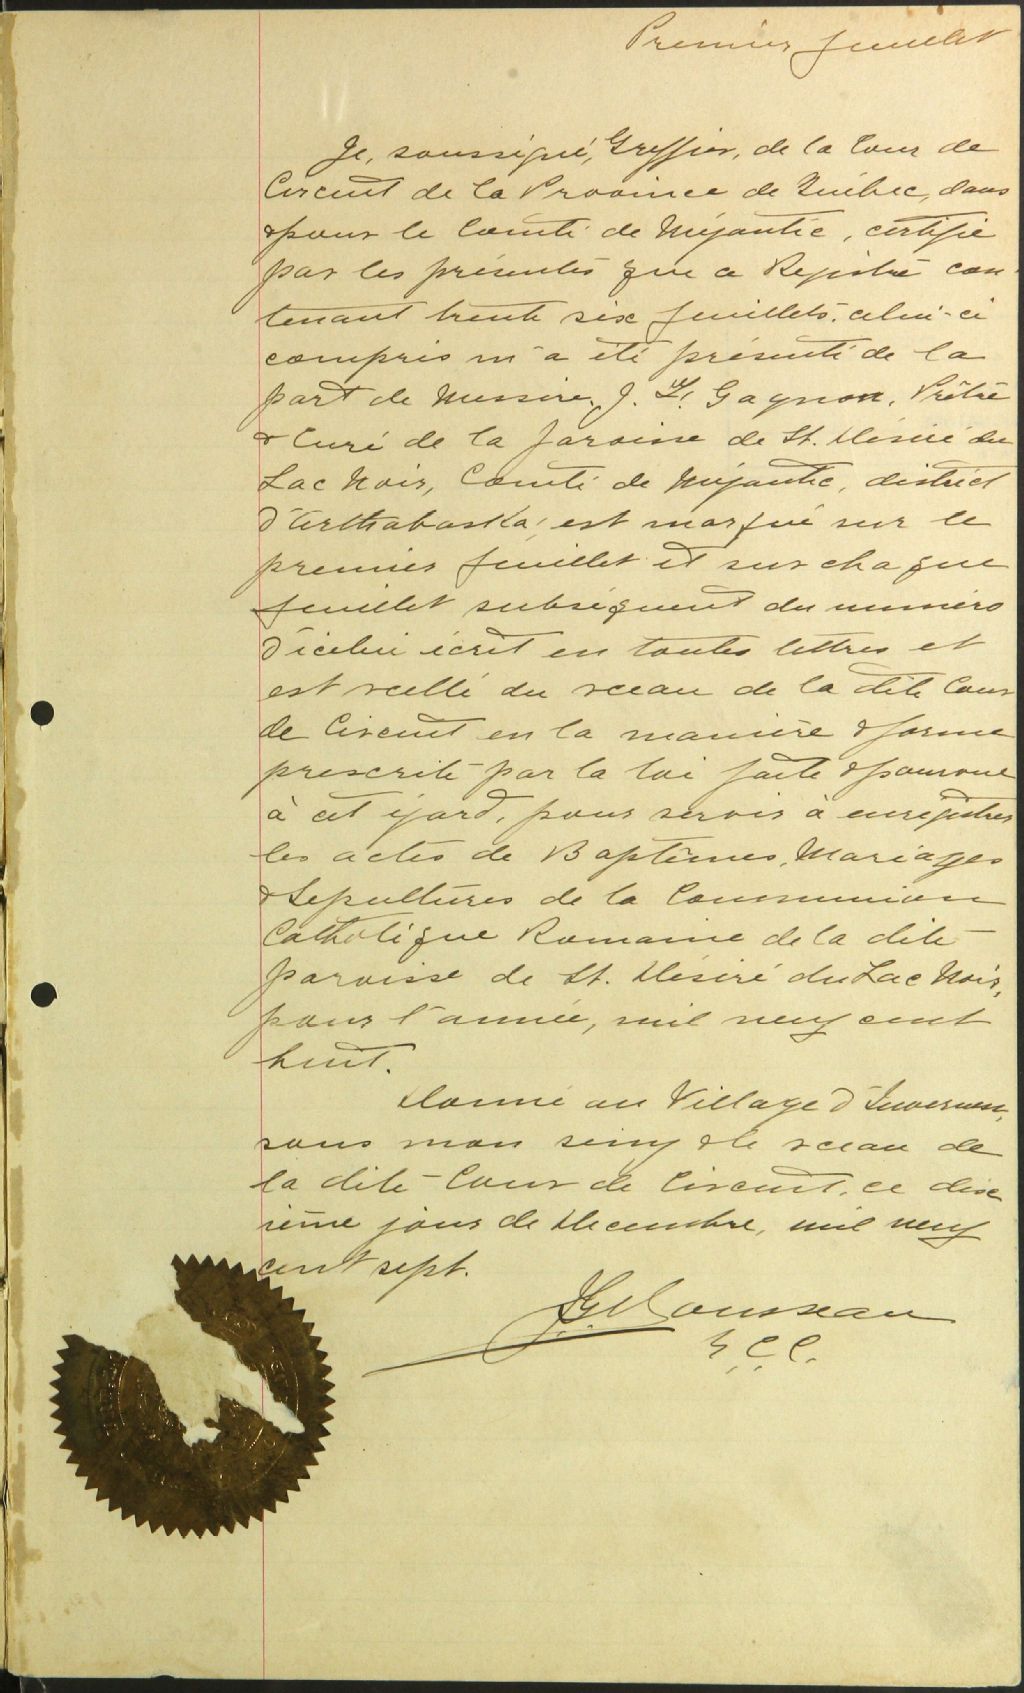 Premier feuillet
Je, soussigné, Greffier, de la Cour de
Circuit de la Province de Québec, dans
& pour le Comté de Mégantic, certifie
par les présentes que ce Registre con-
tenant trente six feuillets, celui-ci
compris m'a été présenté de la
part de Messire, J. Gagnon, Prêtre
& Curé de la Paroisse de St. Désiré du
Lac Noir, Comté de Mégantic, district
d'Arthabaska, est marqué sur le
premier feuillet et sur chaque
feuillet subséquent du numéro
d'icelui écrit en toutes lettres et
est scellé du sceau de la dite Cour
de Circuit en la manière & forme
prescrite par la loi faite & pourvue
à cet égard, pour servir à enrégistrer
les actes de Baptêmes, Mariages
& Sepultures de la Communion
Catholique Romaine de la dite
paroisse de St. Désiré du Lac Noir,
pour l'année, mil neuf cent
huit.
Donné au Village d'Inverness,
sous mon seing & le sceau de
la dite Cour de Circuit, ce dix
ième jour de Decembre, mil neuf
cent sept.
Rousseau
G.C.C.